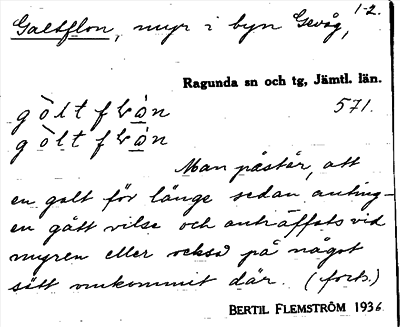 Galtflon, myr i byn Gevåg, 1-2.
Ragunda sn och tg, Jämtl. län.
571.
Man påstår, att
en galt för länge sedan anting-
en gått vilse och anträffats vid
myren eller också på något
sätt omkommit där. (forts.)
BERTIL FLEMSTRÖM 1936